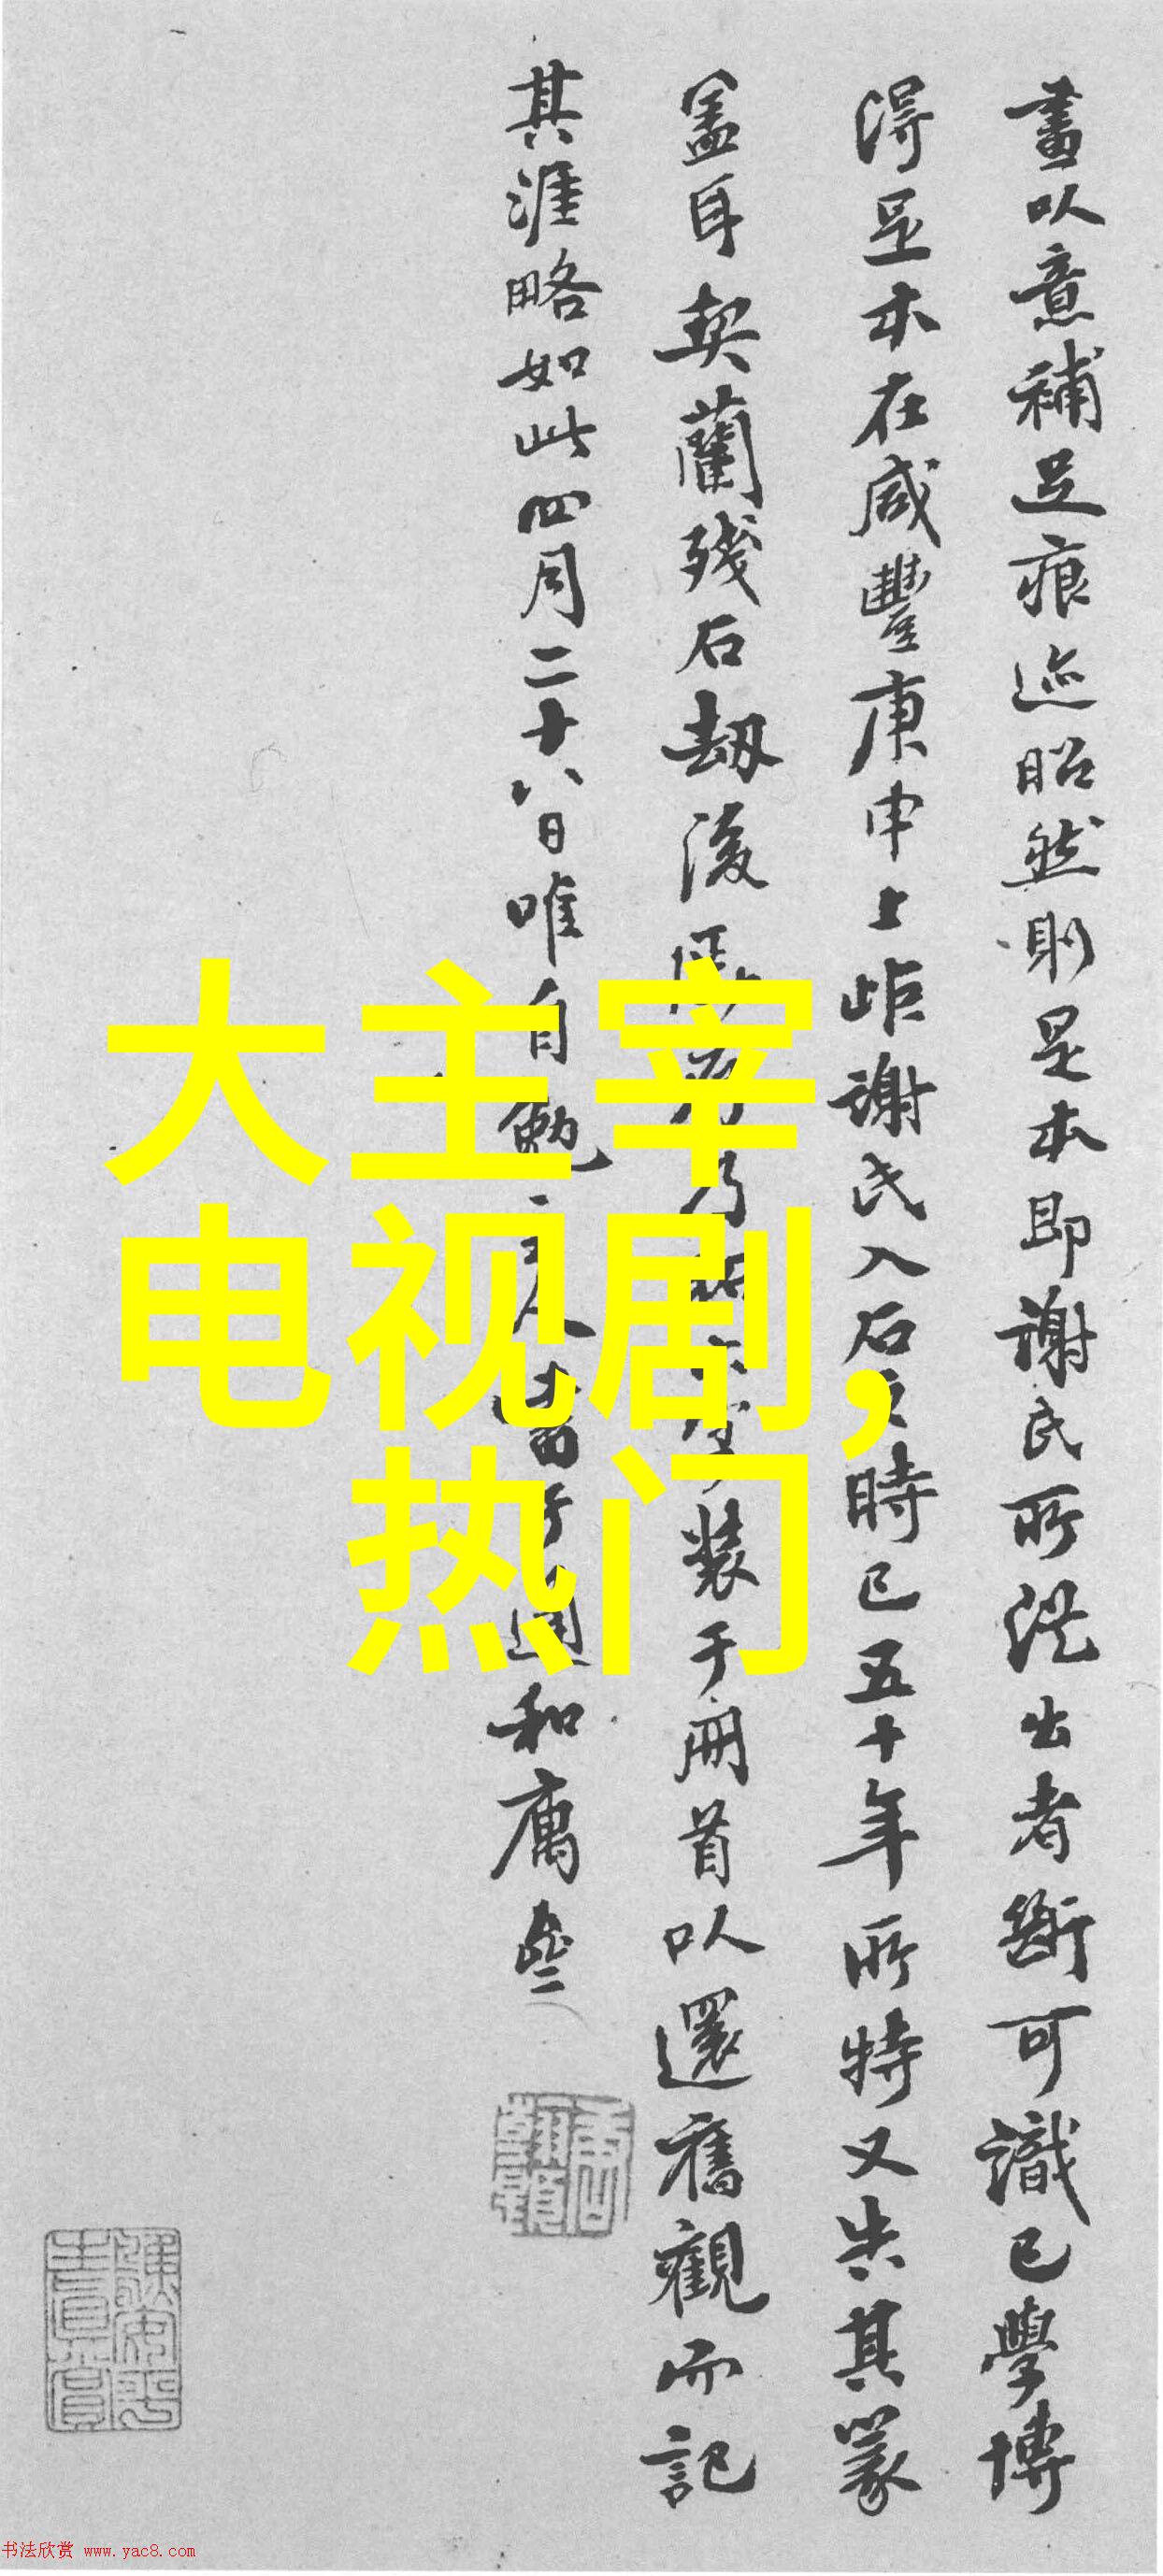 畫以意補足痕迹昭然則是本即謝氏所從出者斷可識已學博
得足本在咸豐庚申上距謝氏入石之時已五十年所特又失其篆
蓋耳契蘭殘石劫後 裝于冊首以還舊觀而記
其涯略如此四月二十八日唯自勉 人書于通和 
大主宰
电视剧,
热门
书法欣赏 www.yac8.com